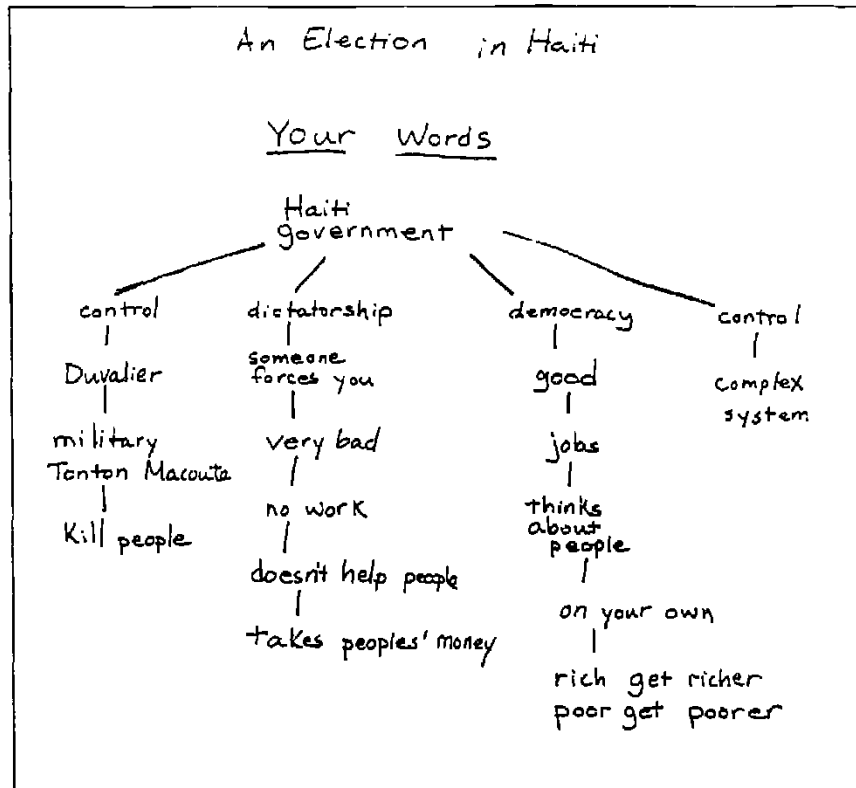 An Election in Haiti
Your Words
Haiti
government
control
Duvalier
military
Tonton Macoute
Kill people
dictatorship
someone
forces you
very bad
no work
doesn't help people
takes peoples' money
democracy
good
jobs
thinks
about
people
on your own
rich get richer
poor get poorer
control
complex
system